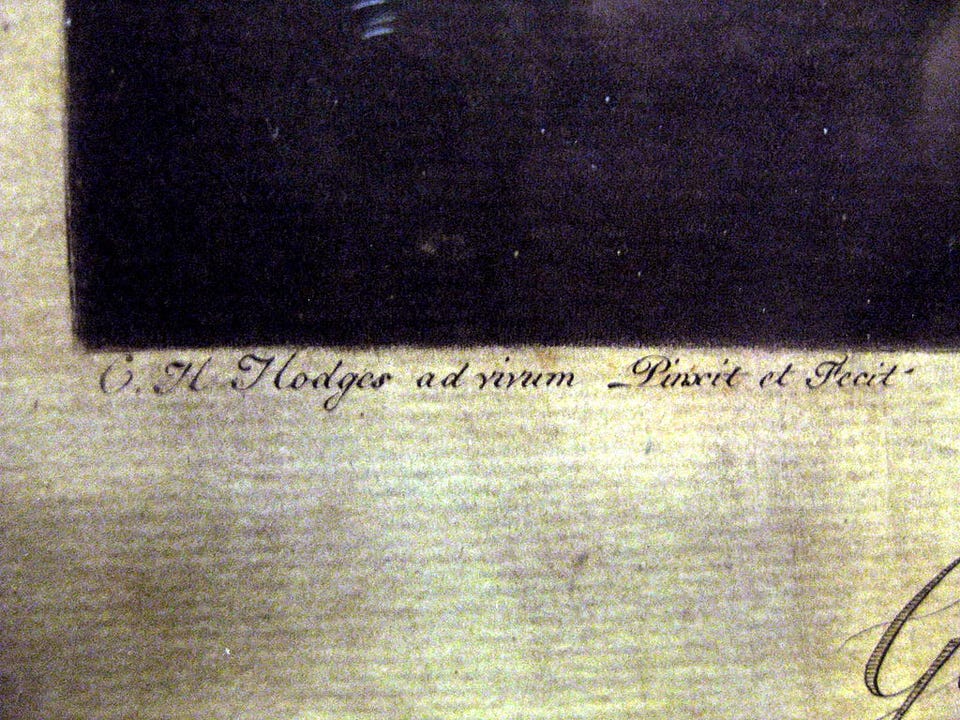 C. H Hodges ad vivum Pinxit et Fecit